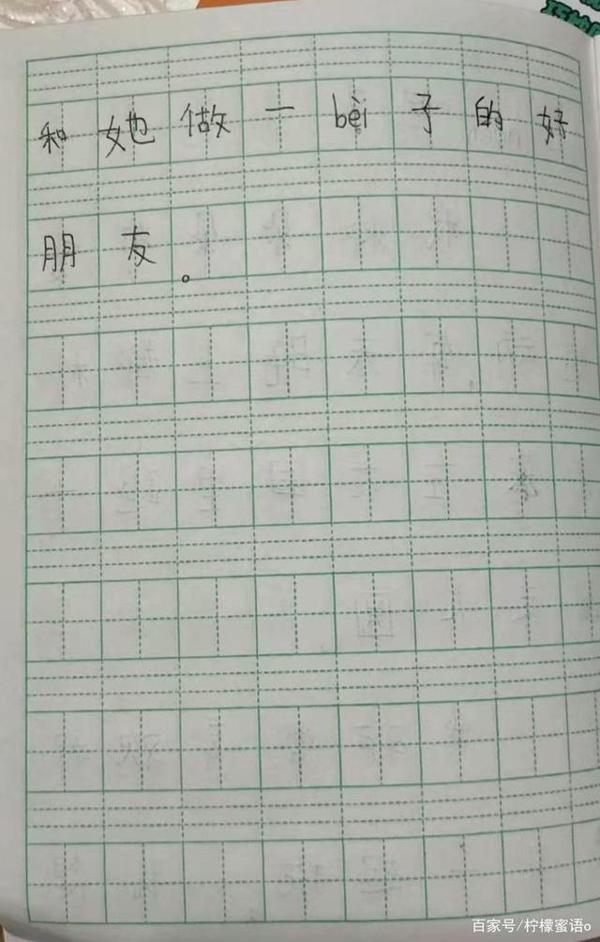 和她做一bèi子的好
朋友。
百家号/柠檬蜜语o